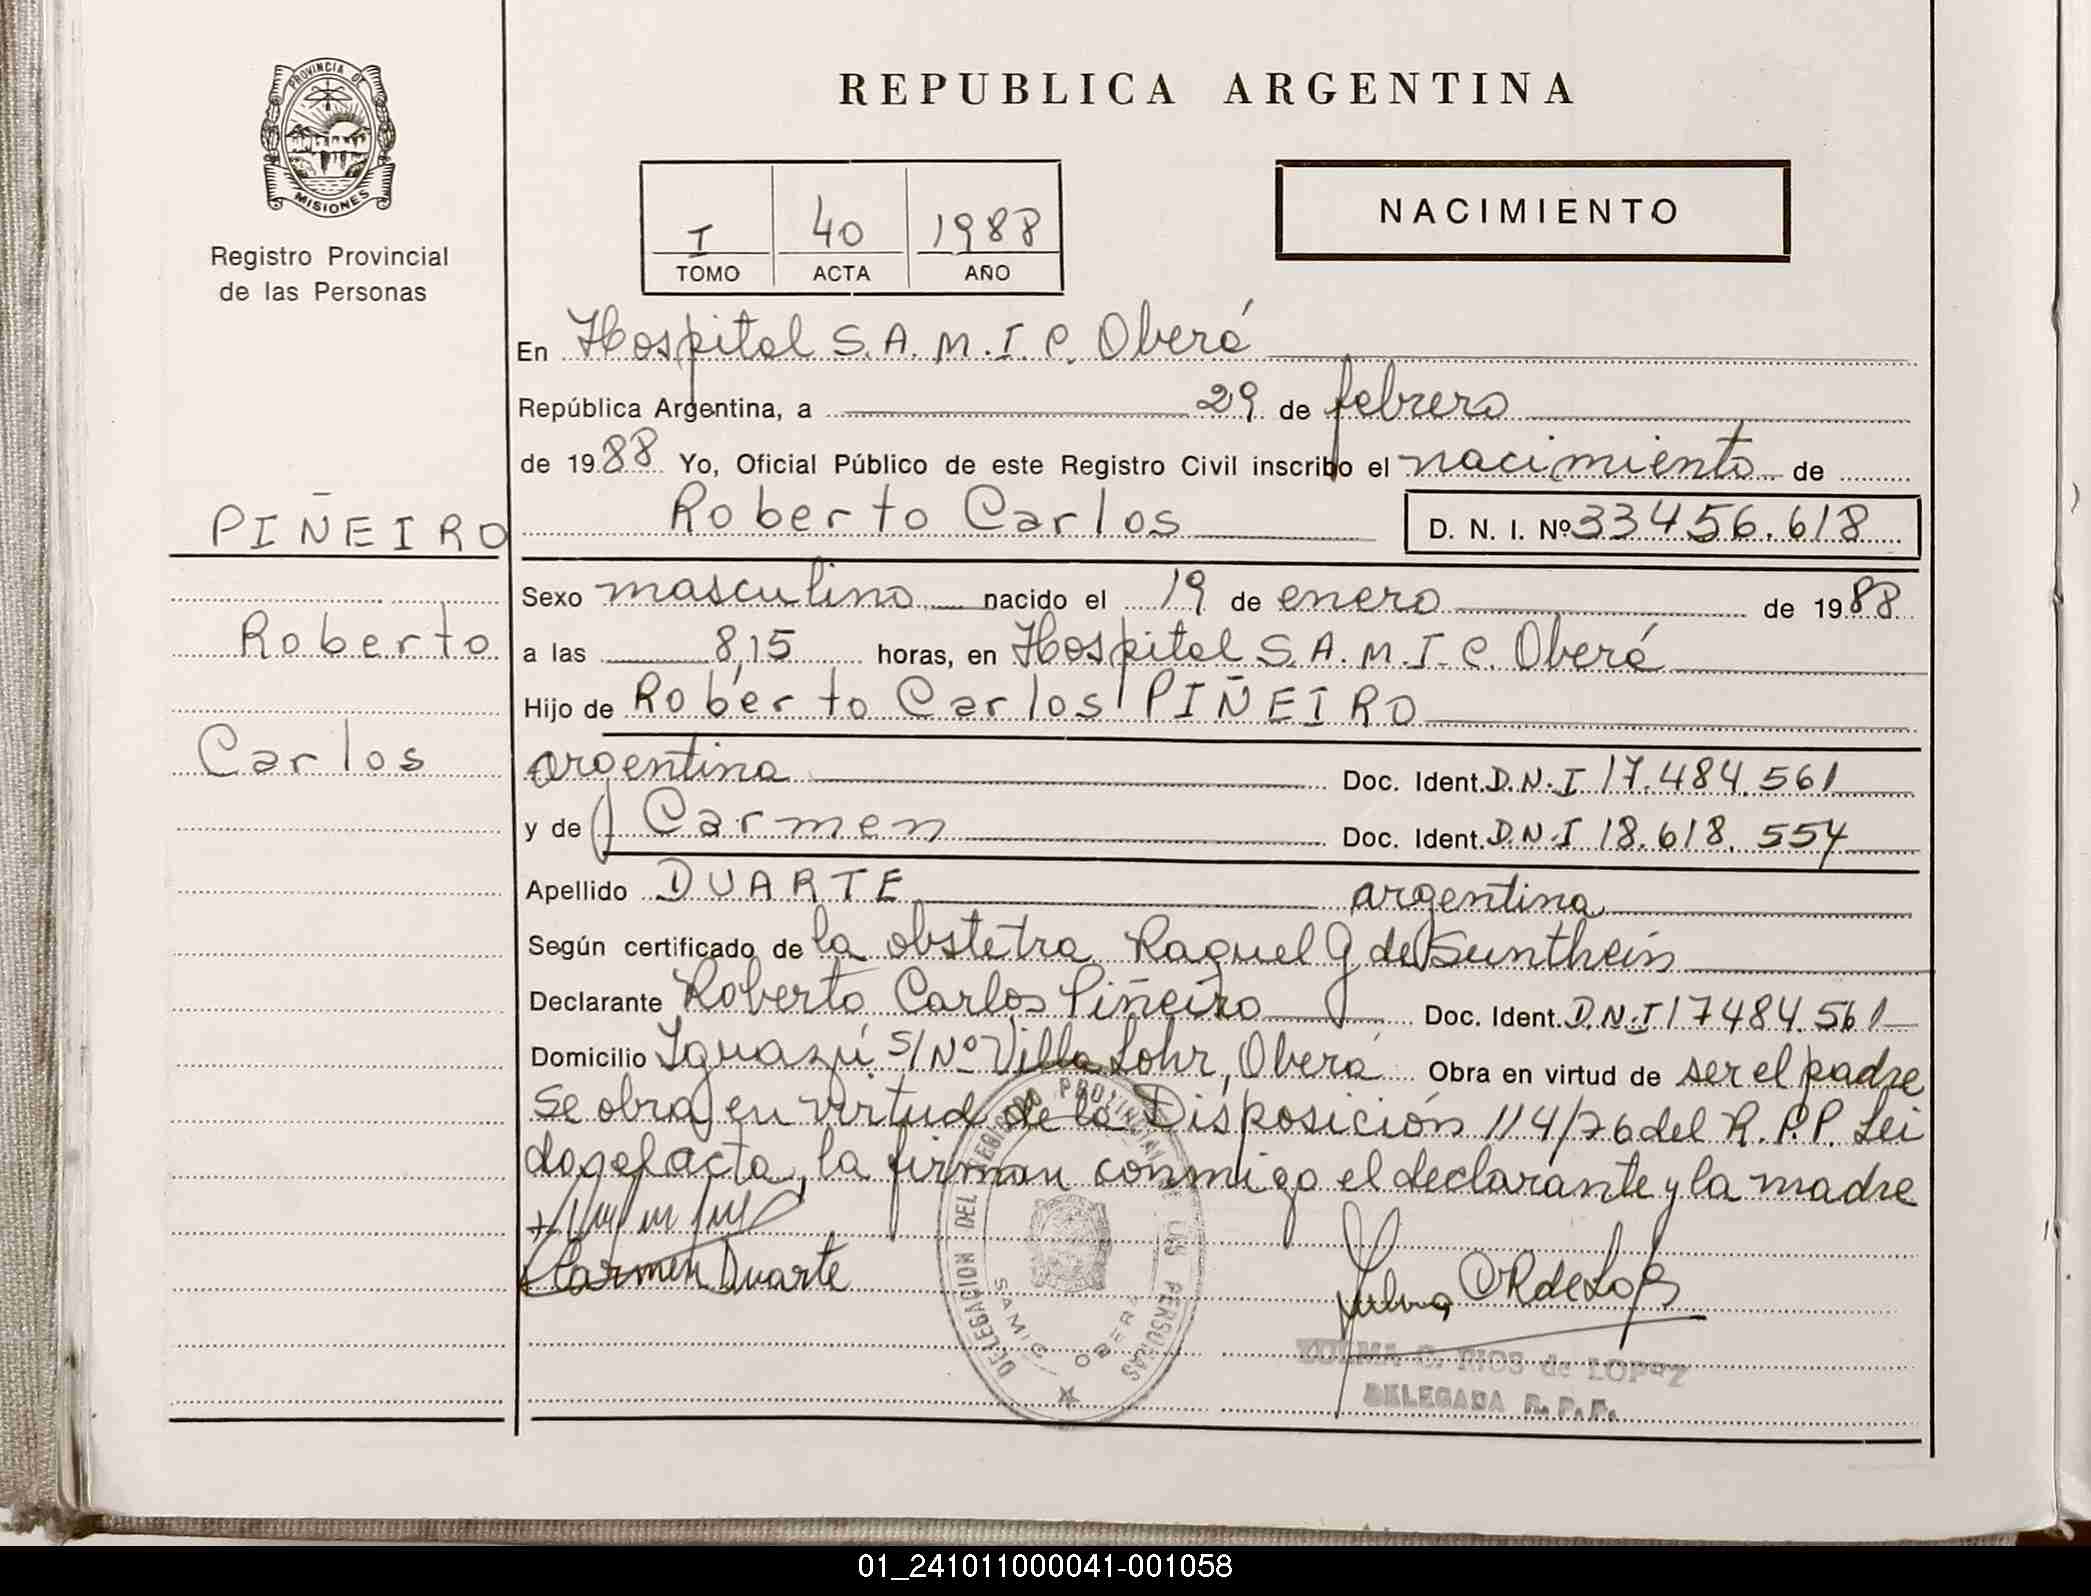 PROVINCIA DE
MISIONES
Registro Provincial
de las Personas
REPUBLICA ARGENTINA
I 40 1988
TOMO ACTA AÑO
NACIMIENTO
En Hospital S.A.M.I.C. Oberá
República Argentina, a 29 de febrero
de 1988 Yo, Oficial Público de este Registro Civil inscribo el nacimiento de
PIÑEIRO Roberto Carlos D. N. I. Nº 33456.618
Sexo masculino nacido el 19 de enero de 1988
Roberto a las 8,15 horas, en Hospital S.A.M.I.C. Oberá
Hijo de Roberto Carlos PIÑEIRO
Carlos argentina Doc. Ident. D.N.I 17.484.561
y de Carmen Doc. Ident. D.N.I 18.618.554
Apellido DUARTE argentina
Según certificado de la obstetra Raquel G de Sunthein
Declarante Roberto Carlos Piñeiro Doc. Ident. D.N.I 17484.561
Domicilio Iguazú s/Nº Villa Lohr, Oberá Obra en virtud de ser el padre
Se obra en virtud de la Disposición 114/76 del R.P.P. Lei
da el acta, la firman conmigo el declarante y la madre
Carmen Duarte
DELEGACION DEL REGISTRO PROVINCIAL DE LAS PERSONAS
SAMIC OBERA
ZULMA C. RIOS de LOPEZ
DELEGADA R.P.P.
01_241011000041-001058